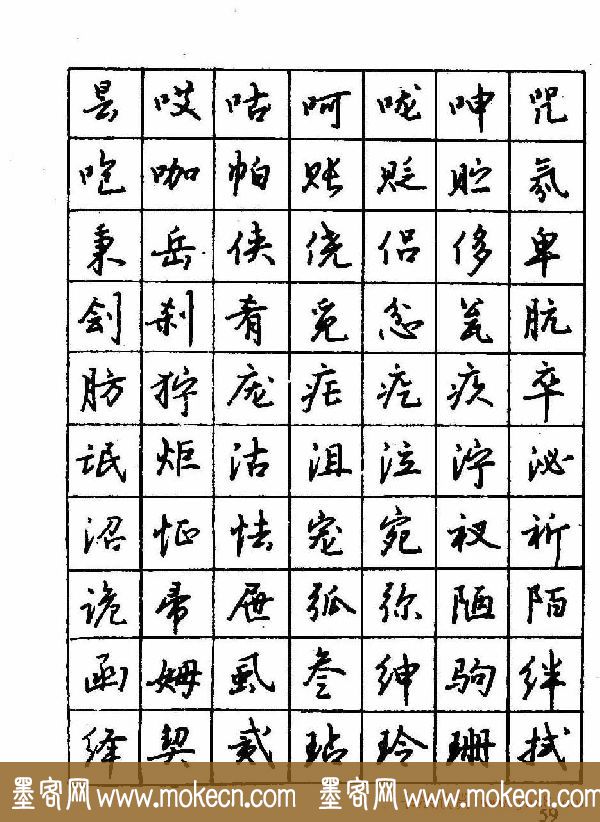 昙 哎 咕 呵 咙 呻 咒
咆 咖 帕 账 贬 贮 氛
秉 岳 侠 侥 侣 侈 卑
刽 刹 肴 觅 忿 瓮 肮
肪 狞 庞 疟 疙 疚 卒
氓 炬 沽 沮 泣 泞 泌
沼 怔 怯 宠 宛 衩 祈
诡 帚 屉 弧 弥 陋 陌
函 姆 虱 叁 绅 驹 绊
绎 契 贰 玷 玲 珊 拭
墨客网 www.mokecn.com 墨客网 www.mokecn.com
59